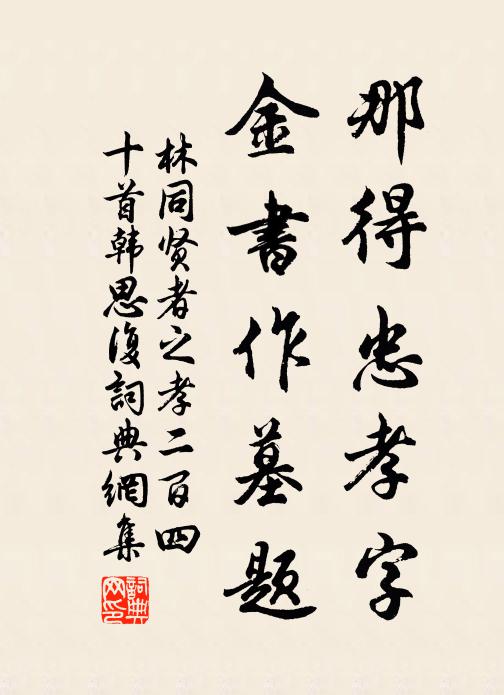 那得忠孝字
金書作墓题
林同贤者之孝二百四
十首韩思復詞典網集
詞典网印